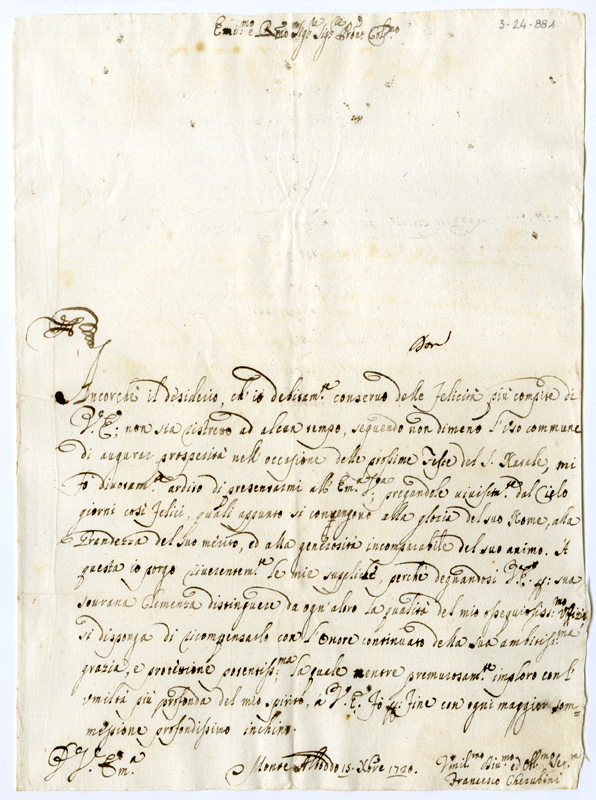 3-24-881
Em.mo e R.mo Sig.re Sig.re Pron Col.mo
Ancorchè il desiderio, ch'io debitam.te conservo delle felicità più compite di
V.E.; non sia ristretto ad alcun tempo, seguendo non dimeno l'uso commune
di augurar prosperità nell'occasione delle prossime Feste del S. Natale, mi
fò divotam.te ardito di presentarmi all'Em.za Sua; pregandole vivissim.te dal Cielo
giorni così felici, quali appunto si convengono alla gloria del suo Nome, alla
Grandezza del suo merito, ed alla generosità incomparabile del suo animo. A
questa io porgo riverentem.te le mie suppliche, perchè degnandosi V.E. per sua
sourana Clemenza distinguere da ogn'altro la qualità del mio ossequiosiss.mo Uffizio
si disponga di ricompensarlo con l'onore continuato della Sua ambitiss.ma
grazia, e protezione potentiss.ma la quale mentre premurosam.te imploro con l'
umiltà più profonda del mio spirito, à V.E. per fine con ogni maggior som=
messione profondissimo inchino.
D. V. Em.a
Monte Alboddo 15. Xbre 1720.
Umil.mo Div.mo ed Obb.mo Ser.e
Francesco Cherubini